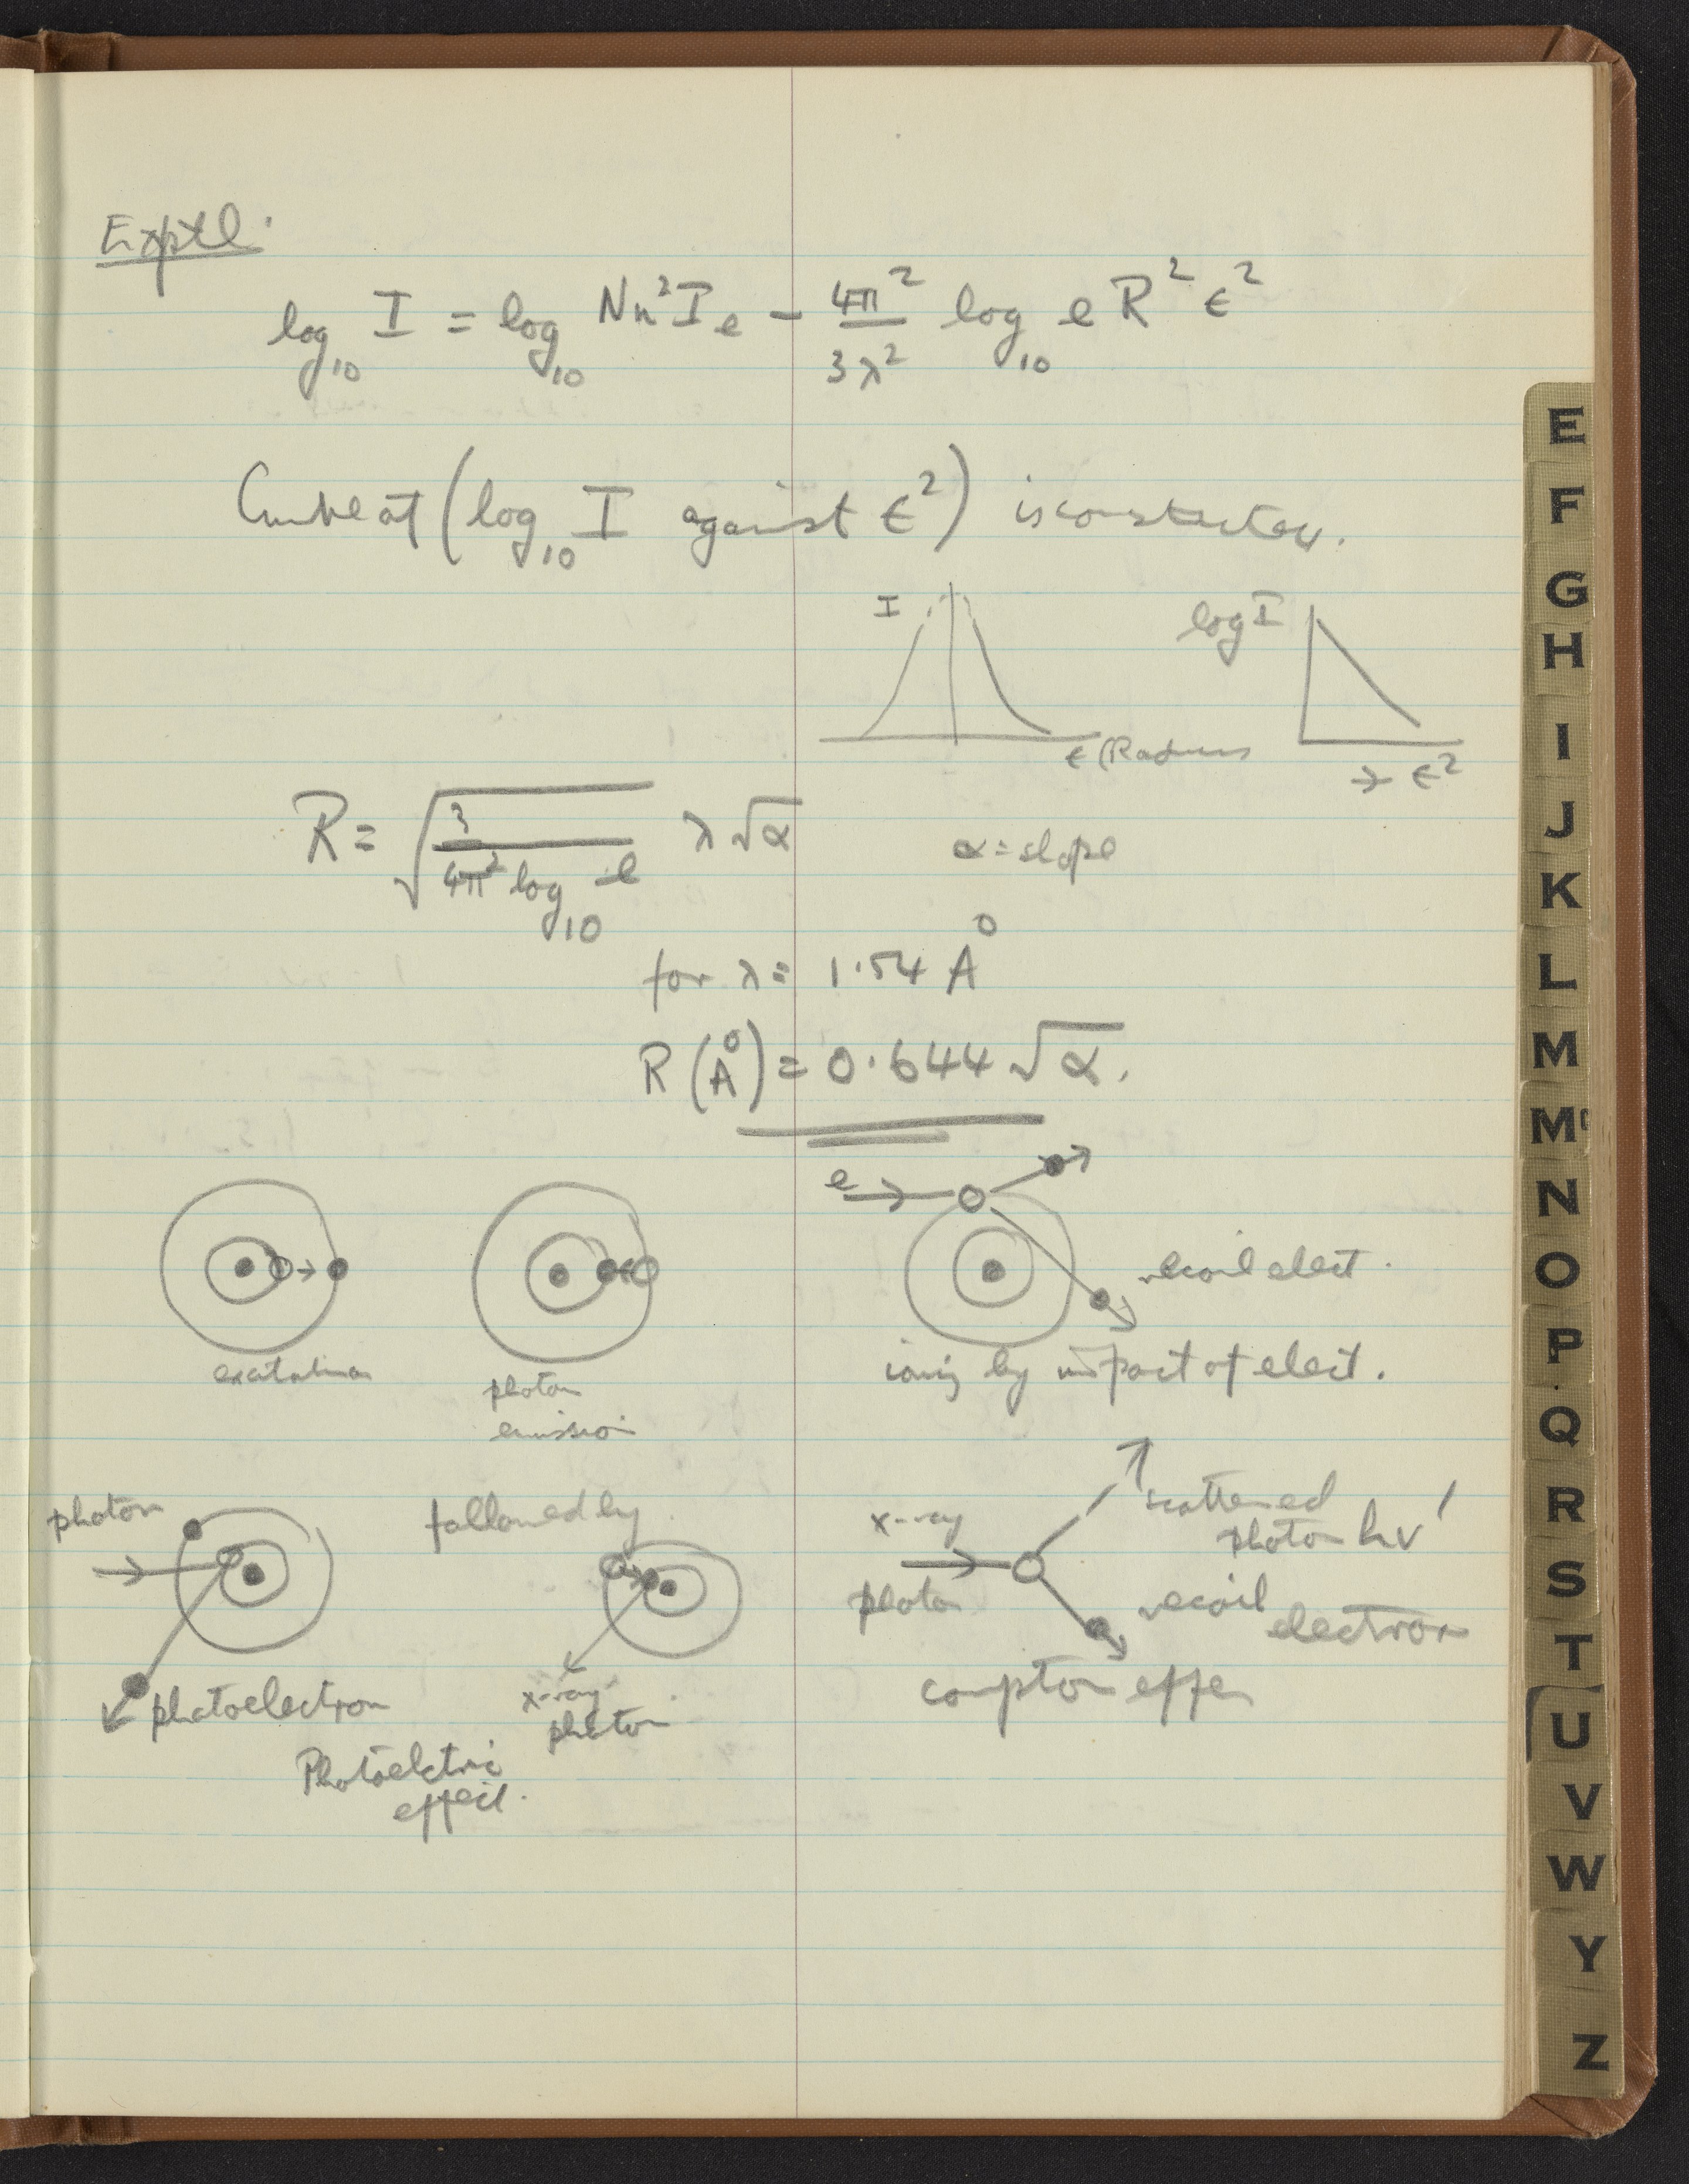 Exptl.
log₁₀ I = log₁₀ Nn²Iₑ − 4π²/3λ² log₁₀ e R² ϵ²
(log₁₀ I against ϵ²) is
I
log I
ϵ (Radians
→ ϵ²
R = √(3/4π² log₁₀ e) λ√α
α = slope
for λ = 1.54 Å
R (Å) = 0.644 √α.
e
recoil elect.
excitation
photon
emission
ioniz by impact of elect.
photon
followed by
x-ray
photon
scattered
photon hν′
recoil
electron
photoelectron
x-ray
photon
compton effe
Photoelctric
effect.
E
F
G
H
I
J
K
L
M
Mc
N
O
P
Q
R
S
T
U
V
W
Y
Z